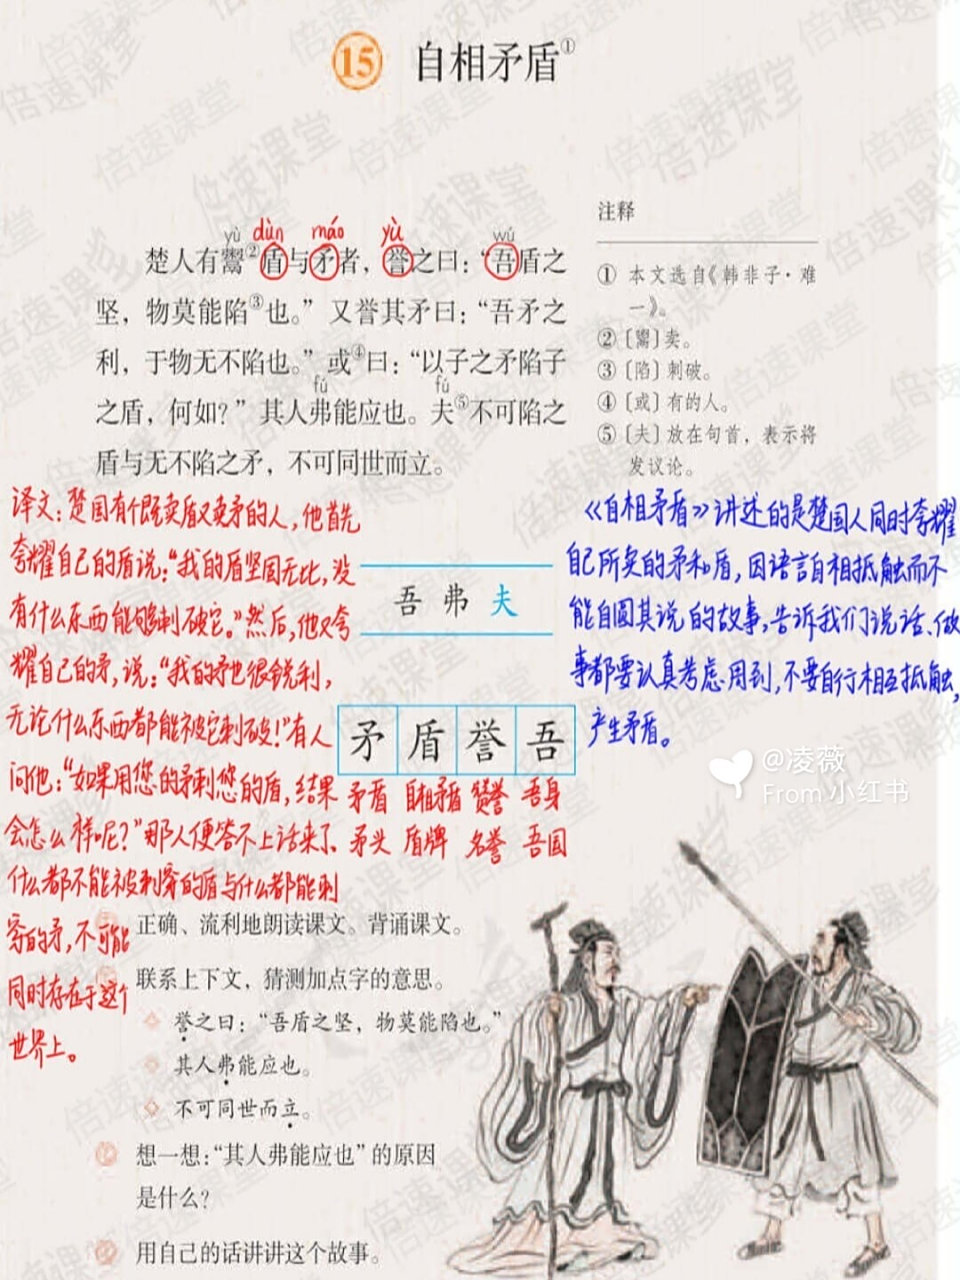 15 自相矛盾①
yù dùn máo yù wú
楚人有鬻②盾与矛者，誉之曰：“吾盾之
坚，物莫能陷③也。”又誉其矛曰：“吾矛之
利，于物无不陷也。”或④曰：“以子之矛陷子
fú fú
之盾，何如？”其人弗能应也。夫⑤不可陷之
盾与无不陷之矛，不可同世而立。
注释
① 本文选自《韩非子·难
一》。
②〔鬻〕卖。
③〔陷〕刺破。
④〔或〕有的人。
⑤〔夫〕放在句首，表示将
发议论。
译文：楚国有个既卖盾又卖矛的人，他首先
夸耀自己的盾说：“我的盾坚固无比，没
有什么东西能够刺破它。”然后，他又夸
耀自己的矛，说：“我的矛也很锐利，
无论什么东西都能被它刺破！”有人
问他：“如果用您的矛刺您的盾，结果
会怎么样呢？”那人便答不上话来了。
什么都不能被刺穿的盾与什么都能刺
穿的矛，不可能
同时存在于这个
世界上。
《自相矛盾》讲述的是楚国人同时夸耀
自己所卖的矛和盾，因语言自相抵触而不
能自圆其说的故事，告诉我们说话、做
事都要认真考虑周到，不要自行相互抵触，
产生矛盾。
吾 弗 夫
矛 盾 誉 吾
矛盾 自相矛盾 赞誉 吾身
矛头 盾牌 名誉 吾国
@凌薇
From 小红书
正确、流利地朗读课文。背诵课文。
联系上下文，猜测加点字的意思。
誉之曰：“吾盾之坚，物莫能陷也。”
其人弗能应也。
不可同世而立。
想一想：“其人弗能应也”的原因
是什么？
用自己的话讲讲这个故事。
倍速课堂